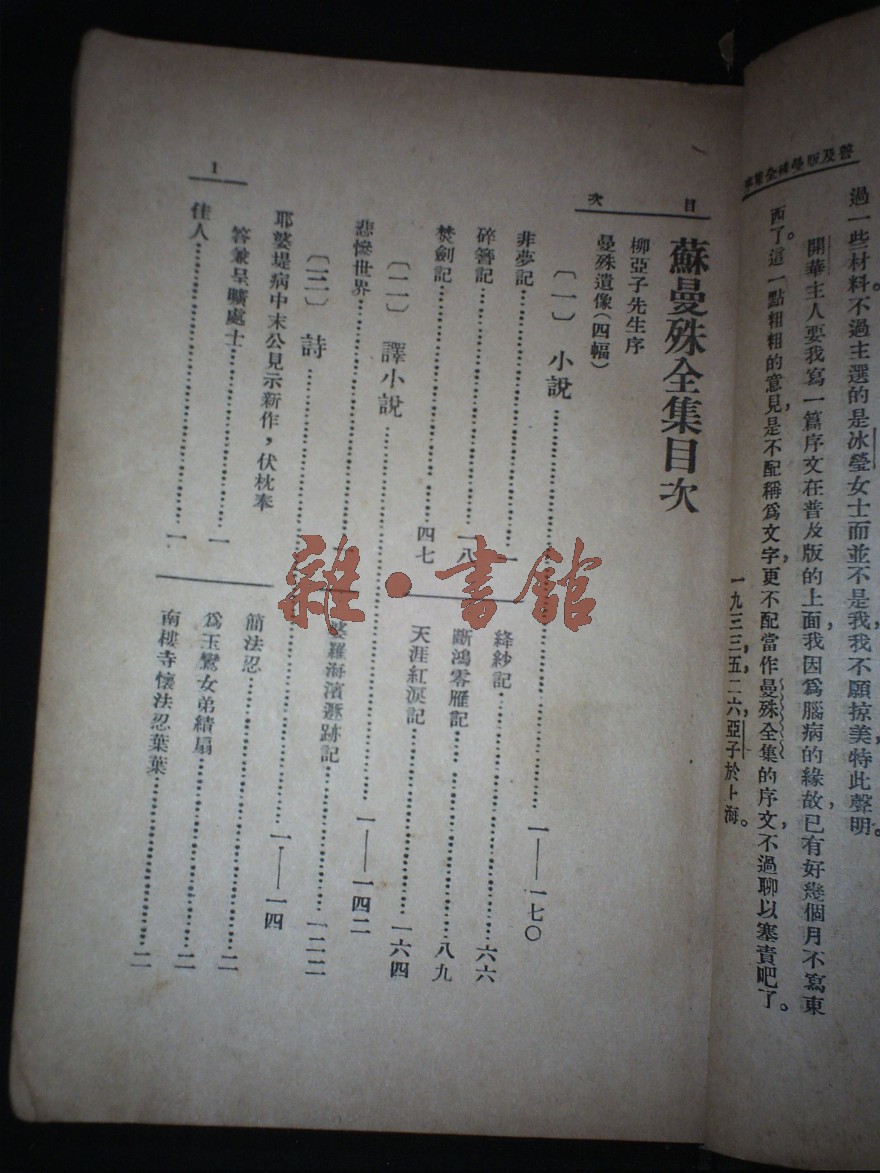 普及版曼殊全集序
過一些材料。不過主選的是冰瑩女士而並不是我,我不願掠美,特此聲明。
開華主人要我寫一篇序文在普及版的上面,我因爲腦病的緣故,已有好幾個月不寫東
西了。這一點粗粗的意見,是不配稱爲文字,更不配當作曼殊全集的序文,不過聊以塞責吧了。
一九三三,五,二六,亞子於上海。
目次
蘇曼殊全集目次
柳亞子先生序
曼殊遺像(四幅)
〔一〕小說……一——一七〇
非夢記……一
絳紗記……六六
碎簪記……一八
斷鴻零雁記……八九
焚劍記……四七
天涯紅淚記……一六四
〔二〕譯小說……一——一四二
悲慘世界……一
娑羅海濱遯跡記……一二二
〔三〕詩……一——一四
耶婆堤病中末公見示新作,伏枕奉
答兼呈曠處士……一
簡法忍……二
爲玉鸞女弟繢扇……二
佳人……一
南樓寺懷法忍葉葉……二
1
雜·書館